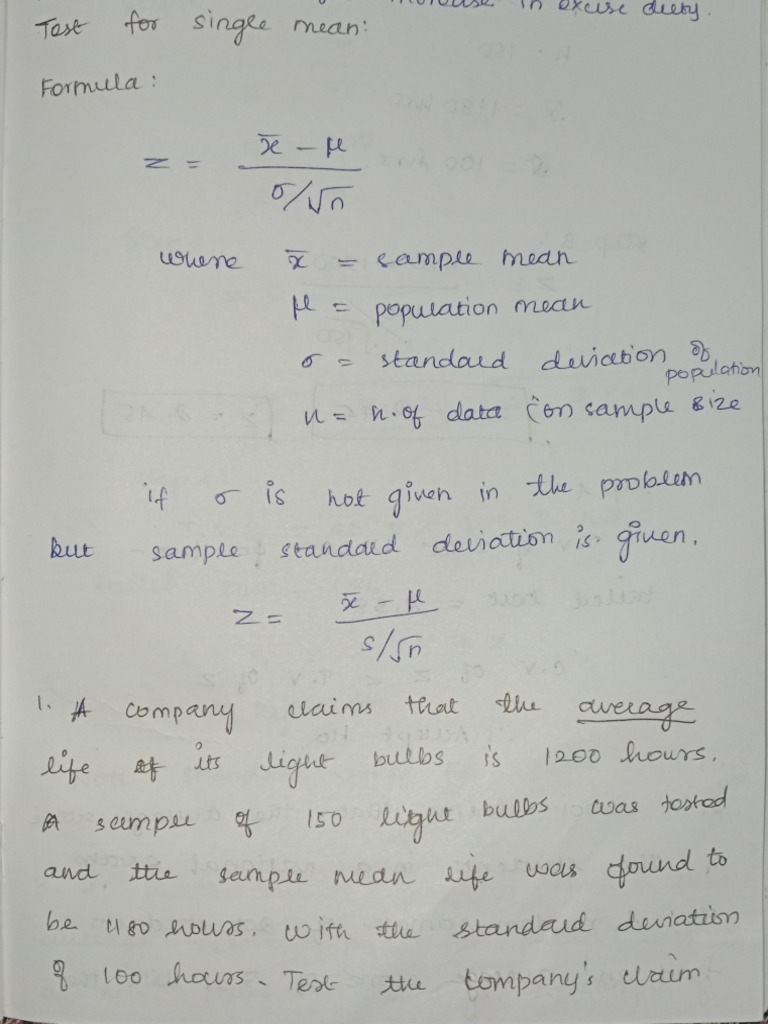 in excise duty.
Test for single mean:
Formula:
z = x̄ - μ / σ/√n
where x̄ = sample mean
μ = population mean
σ = standard deviation of population
n = n. of data (or sample size
if σ is not given in the problem
but sample standard deviation is given.
z = x̄ - μ / s/√n
1. A company claims that the average
life of its light bulbs is 1200 hours.
A sample of 150 light bulbs was tested
and the sample mean life was found to
be 1180 hours. With the standard deviation
of 100 hours. Test the company's claim